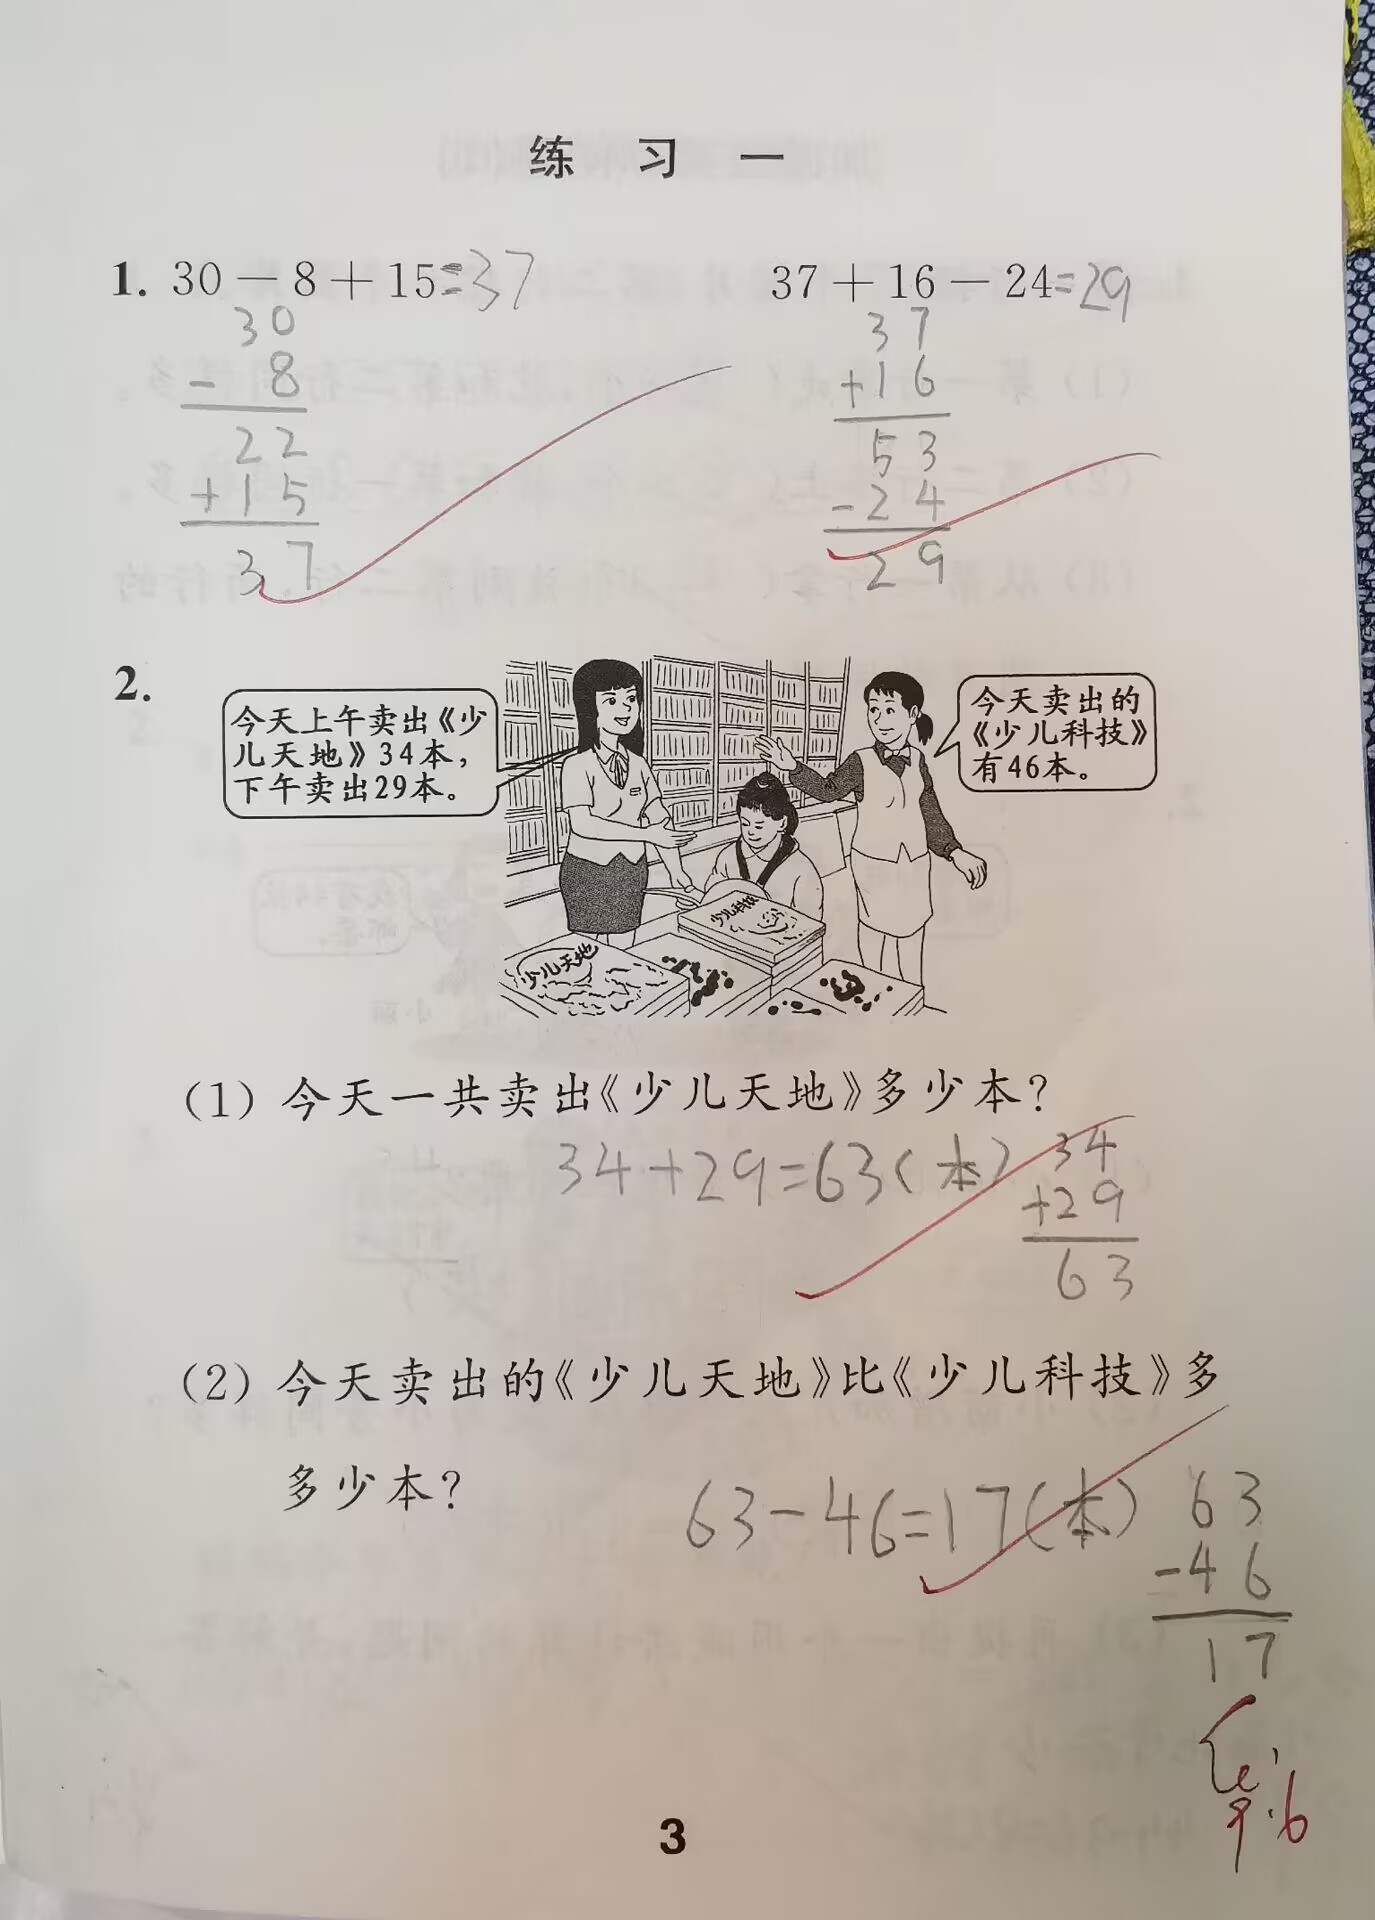 练 习 一
1. 30－8＋15=37
37＋16－24=29
30
- 8
22
+15
37
37
+16
53
-24
29
2.
今天上午卖出《少
儿天地》34本，
下午卖出29本。
今天卖出的
《少儿科技》
有46本。
少儿科技
少儿天地
（1）今天一共卖出《少儿天地》多少本？
34+29=63(本)
34
+29
63
（2）今天卖出的《少儿天地》比《少儿科技》多
多少本？
63-46=17(本)
63
-46
17
9.6
3